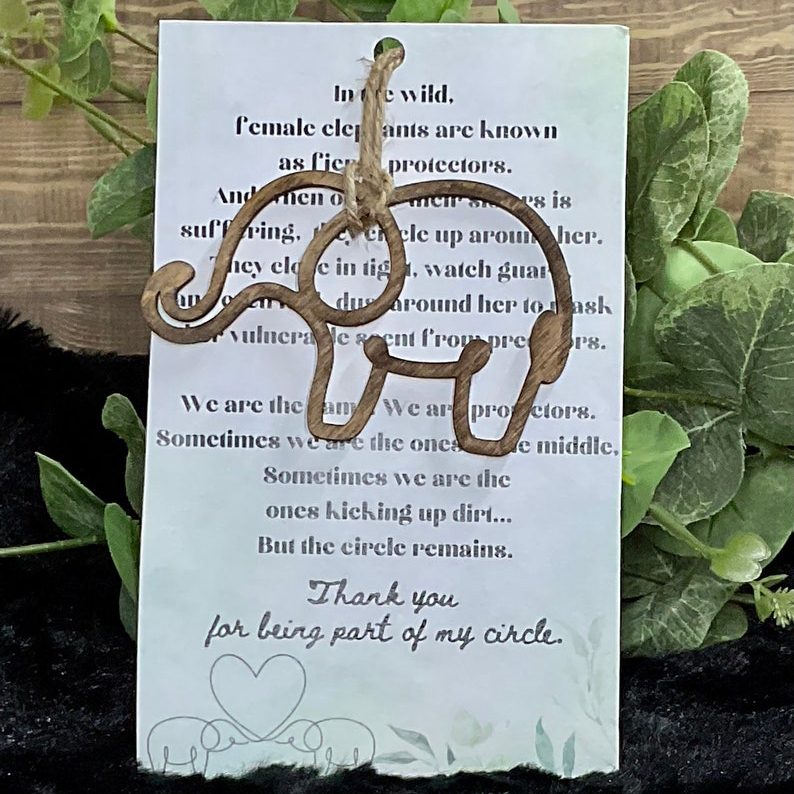 In the wild,
female elephants are known
as fierce protectors.
And when their sisters is
suffering, they circle up around her.
They close in tight, watch guard,
and even dust around her to mask
her vulnerable scent from predators.
We are the same. We are protectors.
Sometimes we are the ones the middle,
Sometimes we are the
ones kicking up dirt...
But the circle remains.
Thank you
for being part of my circle.